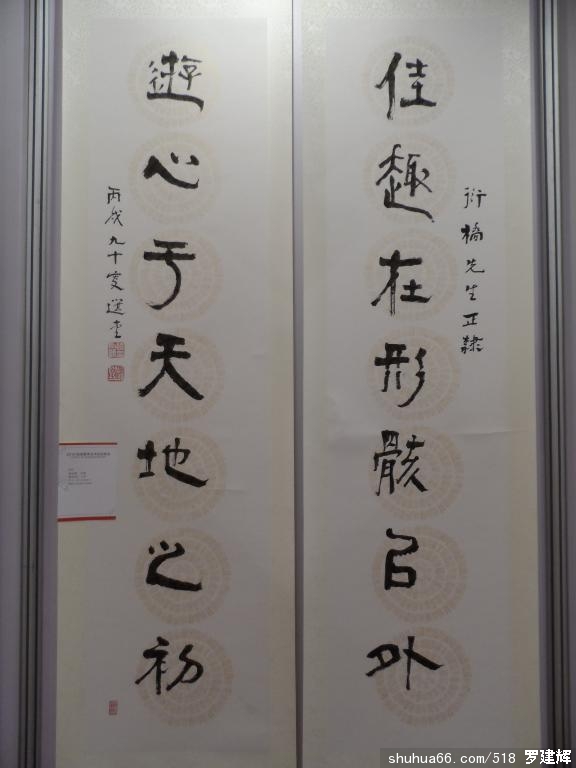 衍橋先生正隸
佳趣在形骸㠯外
遊心于天地之初
丙戌九十叟選堂
shuhua66.com/518 罗建辉